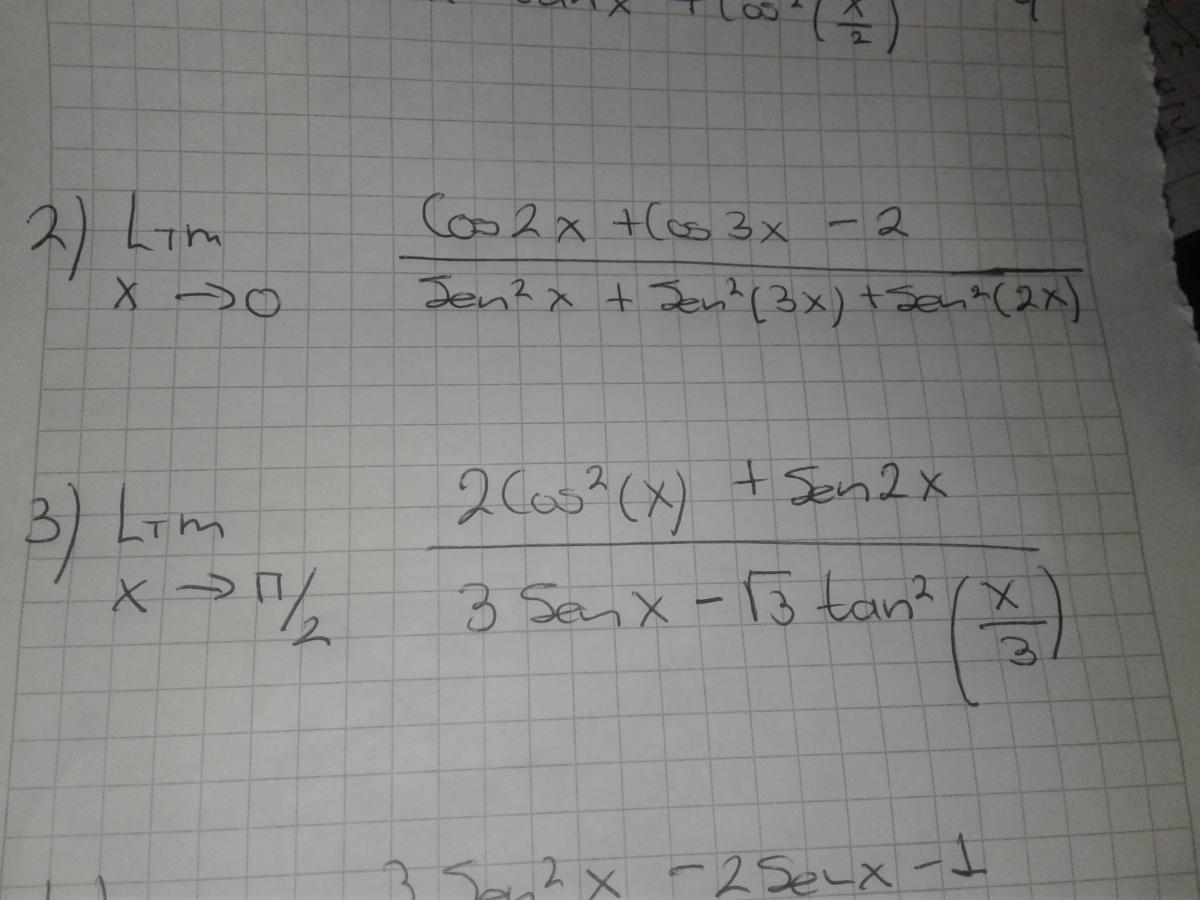 x + Cos²(x/2)
2) Lim Cos 2x + Cos 3x - 2
x → 0 Sen² x + Sen² (3x) + Sen² (2x)
3) Lim 2 Cos² (x) + Sen 2x
x → π/2 3 Sen x - √3 tan² (x/3)
3 Sen² x - 2 Sen x - 1